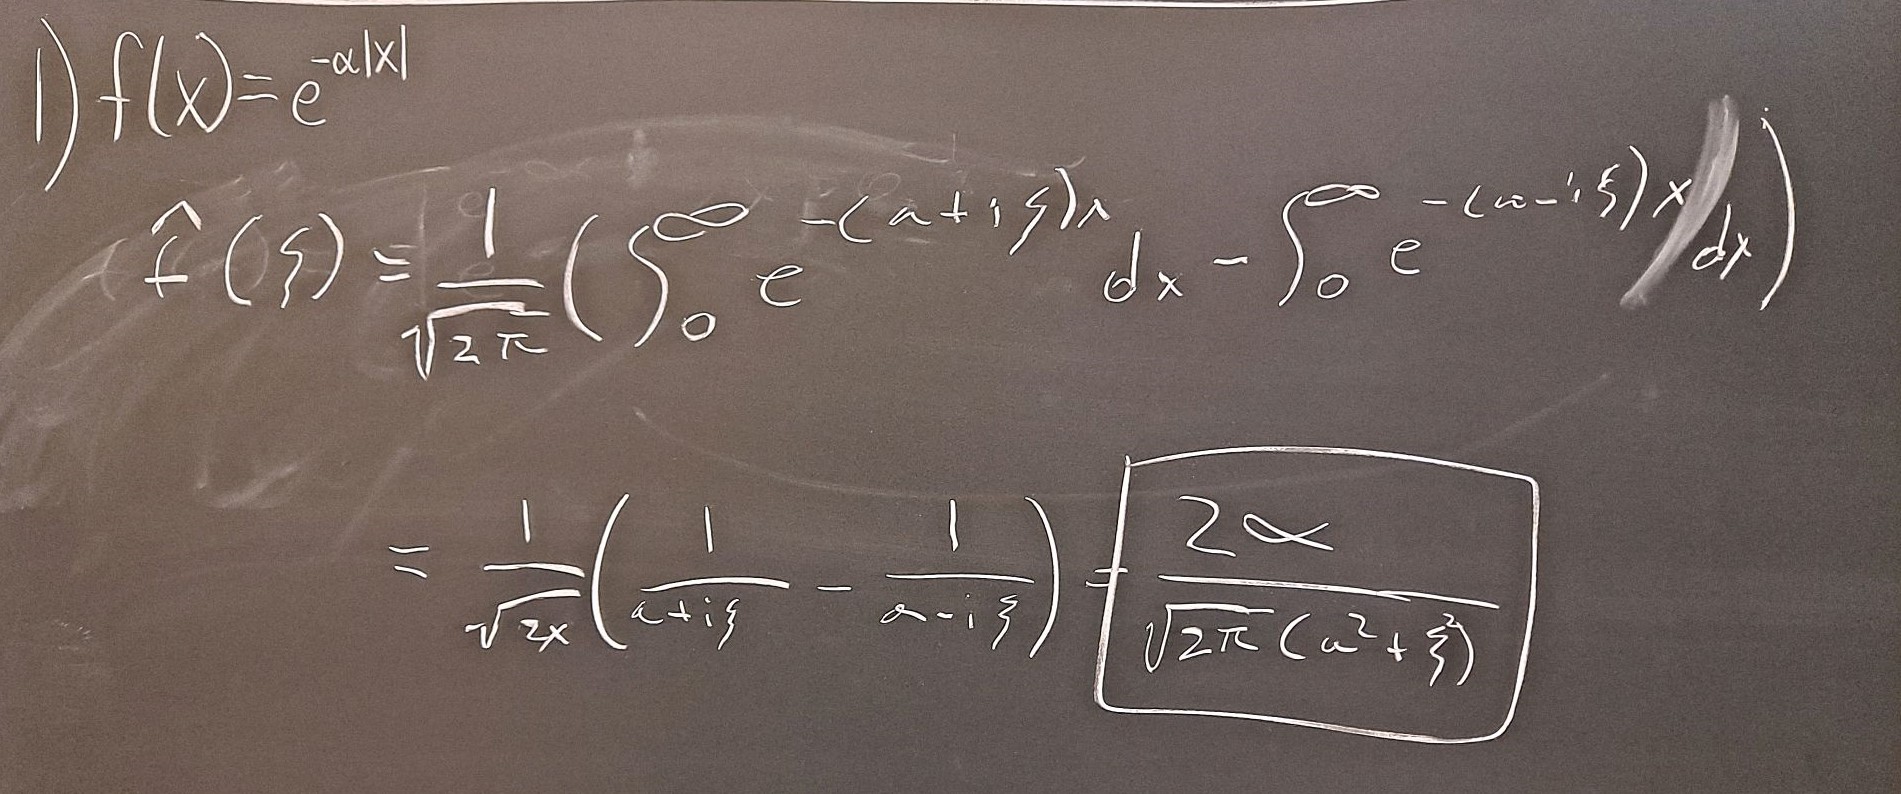 1) f(x) = e^{-α|x|}
f̂(ξ) = 1/√2π (∫_0^∞ e^{-(a+iξ)x} dx - ∫_0^∞ e^{-(a-iξ)x} dx)
= 1/√2x (1/(a+iξ) - 1/(a-iξ)) = 2α/(√2π (a²+ξ²))